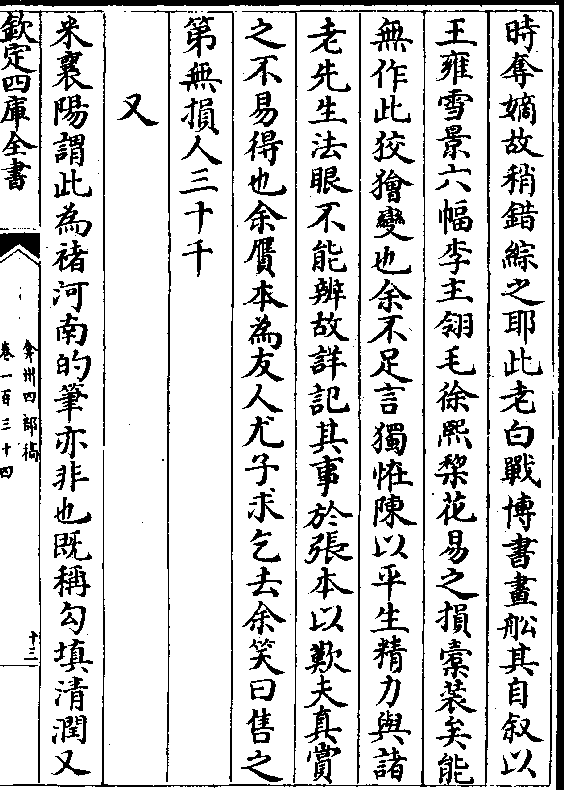 時奪嫡故稍錯綜之耶此老白戰博書畫舩其自叙以
王雍雪景六幅李主翎毛徐熙梨花易之損橐装矣能
無作此狡獪變也余不足言獨怪陳以平生精力與諸
老先生法眼不能辨故詳記其事於張本以歎夫真賞
之不易得也余贋本為友人尤子求乞去余笑曰售之
第無損人三十千
又
米襄陽謂此為禇河南的筆亦非也既稱勾填清潤又
欽定四庫全書
弇州四部稿
卷一百三十四
十三